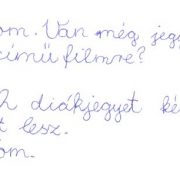 om. Van még jegy
című filmre?
2 diákjegyet ké
t lesz.
om.